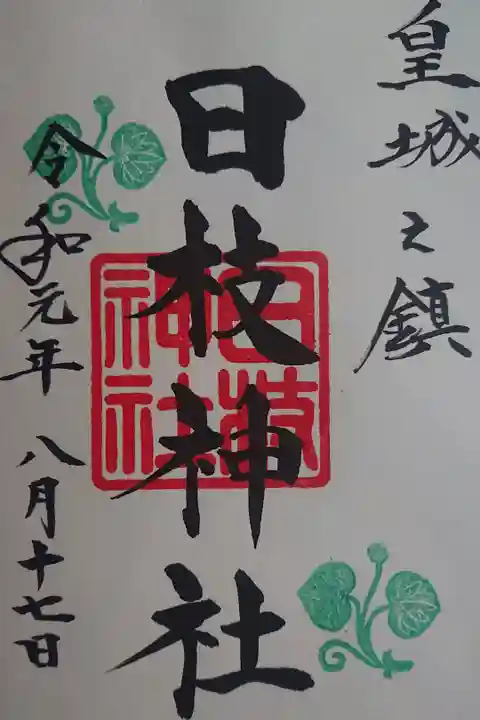 皇城之鎮
日枝神社
日枝神社
令和元年八月十七日